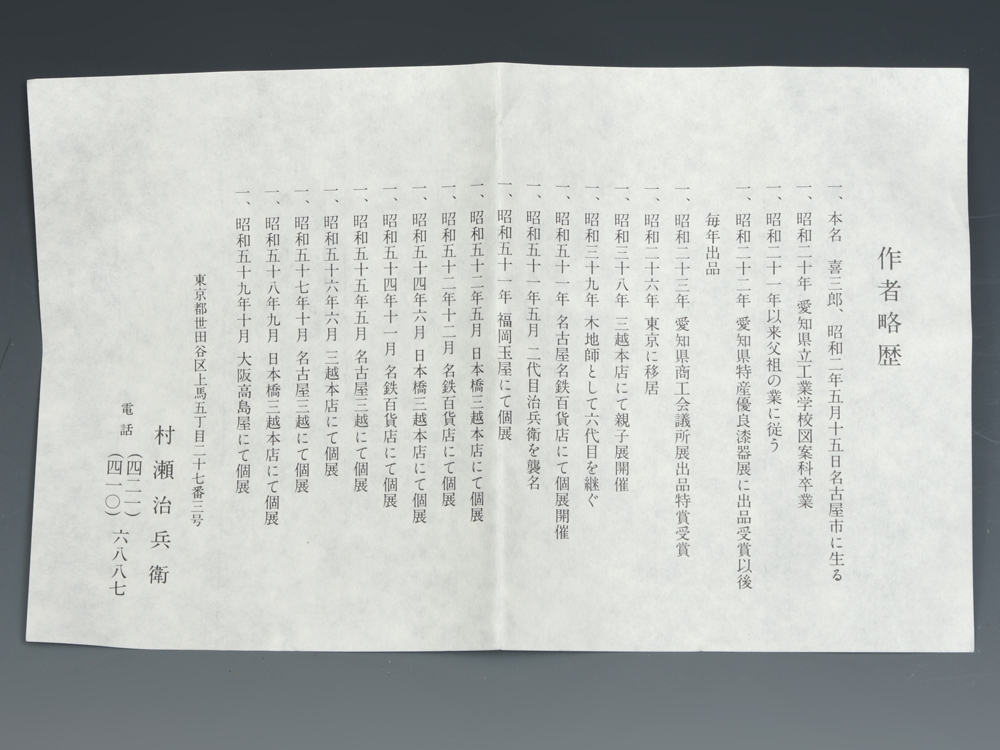 作者略歴
一、本名　喜三郎、昭和二年五月十五日名古屋市に生る
一、昭和二十年　愛知県立工業学校図案科卒業
一、昭和二十一年以来父祖の業に従う
一、昭和二十二年　愛知県特産優良漆器展に出品受賞以後
毎年出品
一、昭和二十三年　愛知県商工会議所展出品特賞受賞
一、昭和二十六年　東京に移居
一、昭和三十八年　三越本店にて親子展開催
一、昭和三十九年　木地師として六代目を継ぐ
一、昭和五十一年　名古屋名鉄百貨店にて個展開催
一、昭和五十一年五月　二代目治兵衛を襲名
一、昭和五十一年　福岡玉屋にて個展
一、昭和五十二年五月　日本橋三越本店にて個展
一、昭和五十二年十二月　名鉄百貨店にて個展
一、昭和五十四年六月　日本橋三越本店にて個展
一、昭和五十四年十一月　名鉄百貨店にて個展
一、昭和五十五年五月　名古屋三越にて個展
一、昭和五十六年六月　三越本店にて個展
一、昭和五十七年十月　名古屋三越にて個展
一、昭和五十八年九月　日本橋三越本店にて個展
一、昭和五十九年十月　大阪高島屋にて個展
東京都世田谷区上馬五丁目二十七番三号
村瀬治兵衛
電話　（四二一）
（四一〇）六八八七